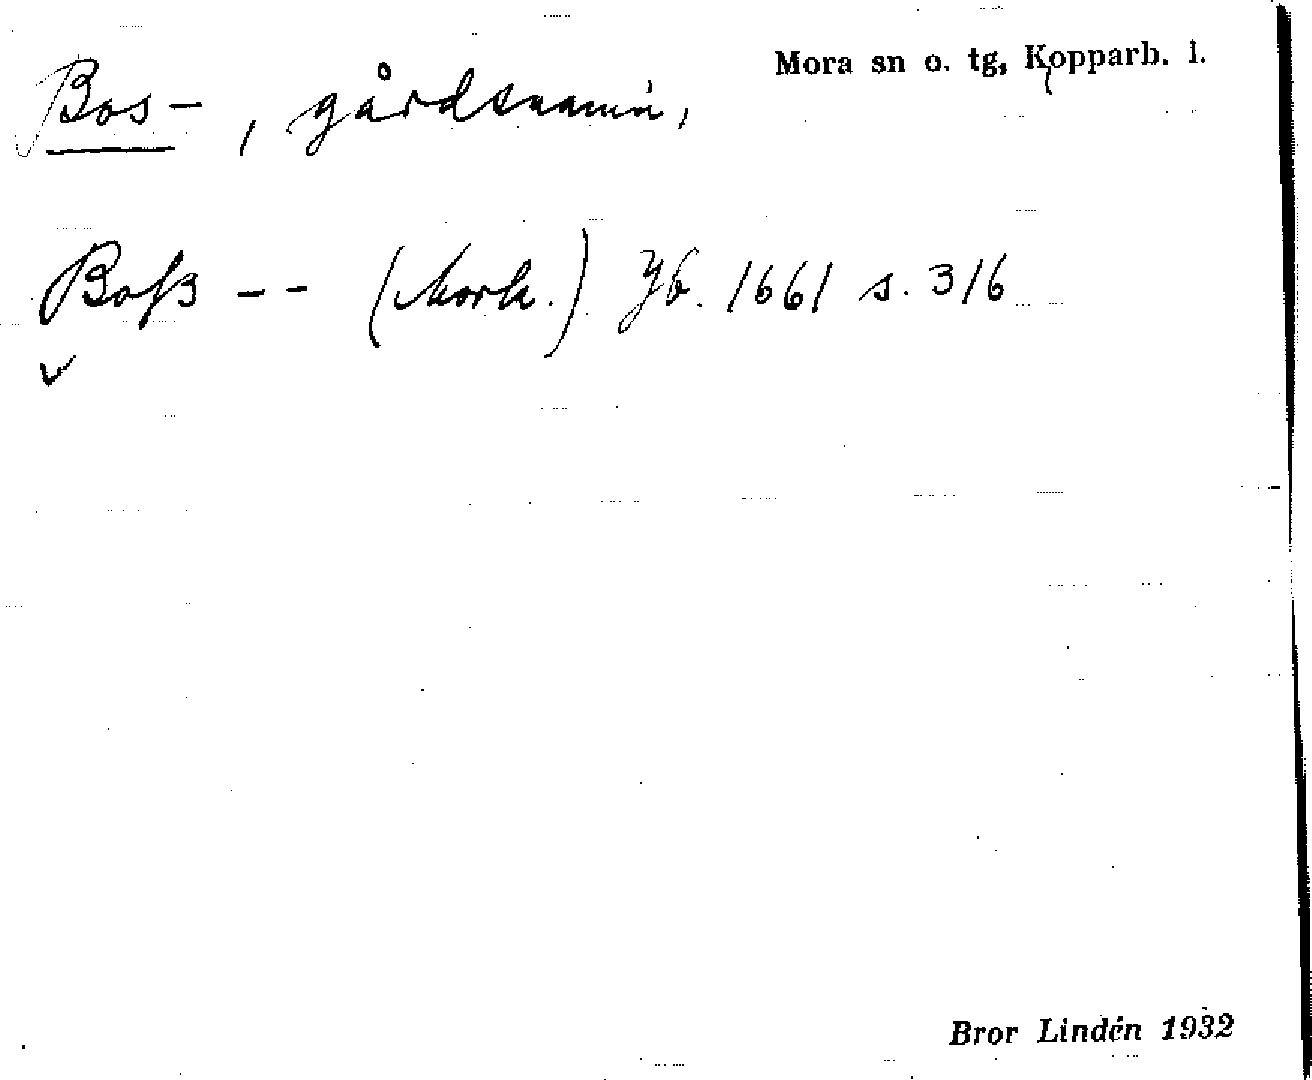 Mora sn o. tg, Kopparb. l.
Bos-, gårdsnamn,
Boß -- (Mork.) Jb. 1661 s. 316
Bror Lindén 1932